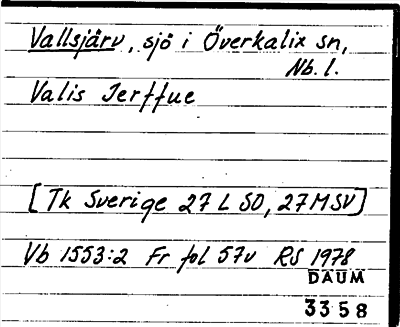 Vallsjärv, sjö i Överkalix sn,
Nb. l.
Valis Jerffue
[Tk Sverige 27 L SO, 27 M SV]
Vb 1553:2 Fr fol 57v RS 1978
DAUM
3358